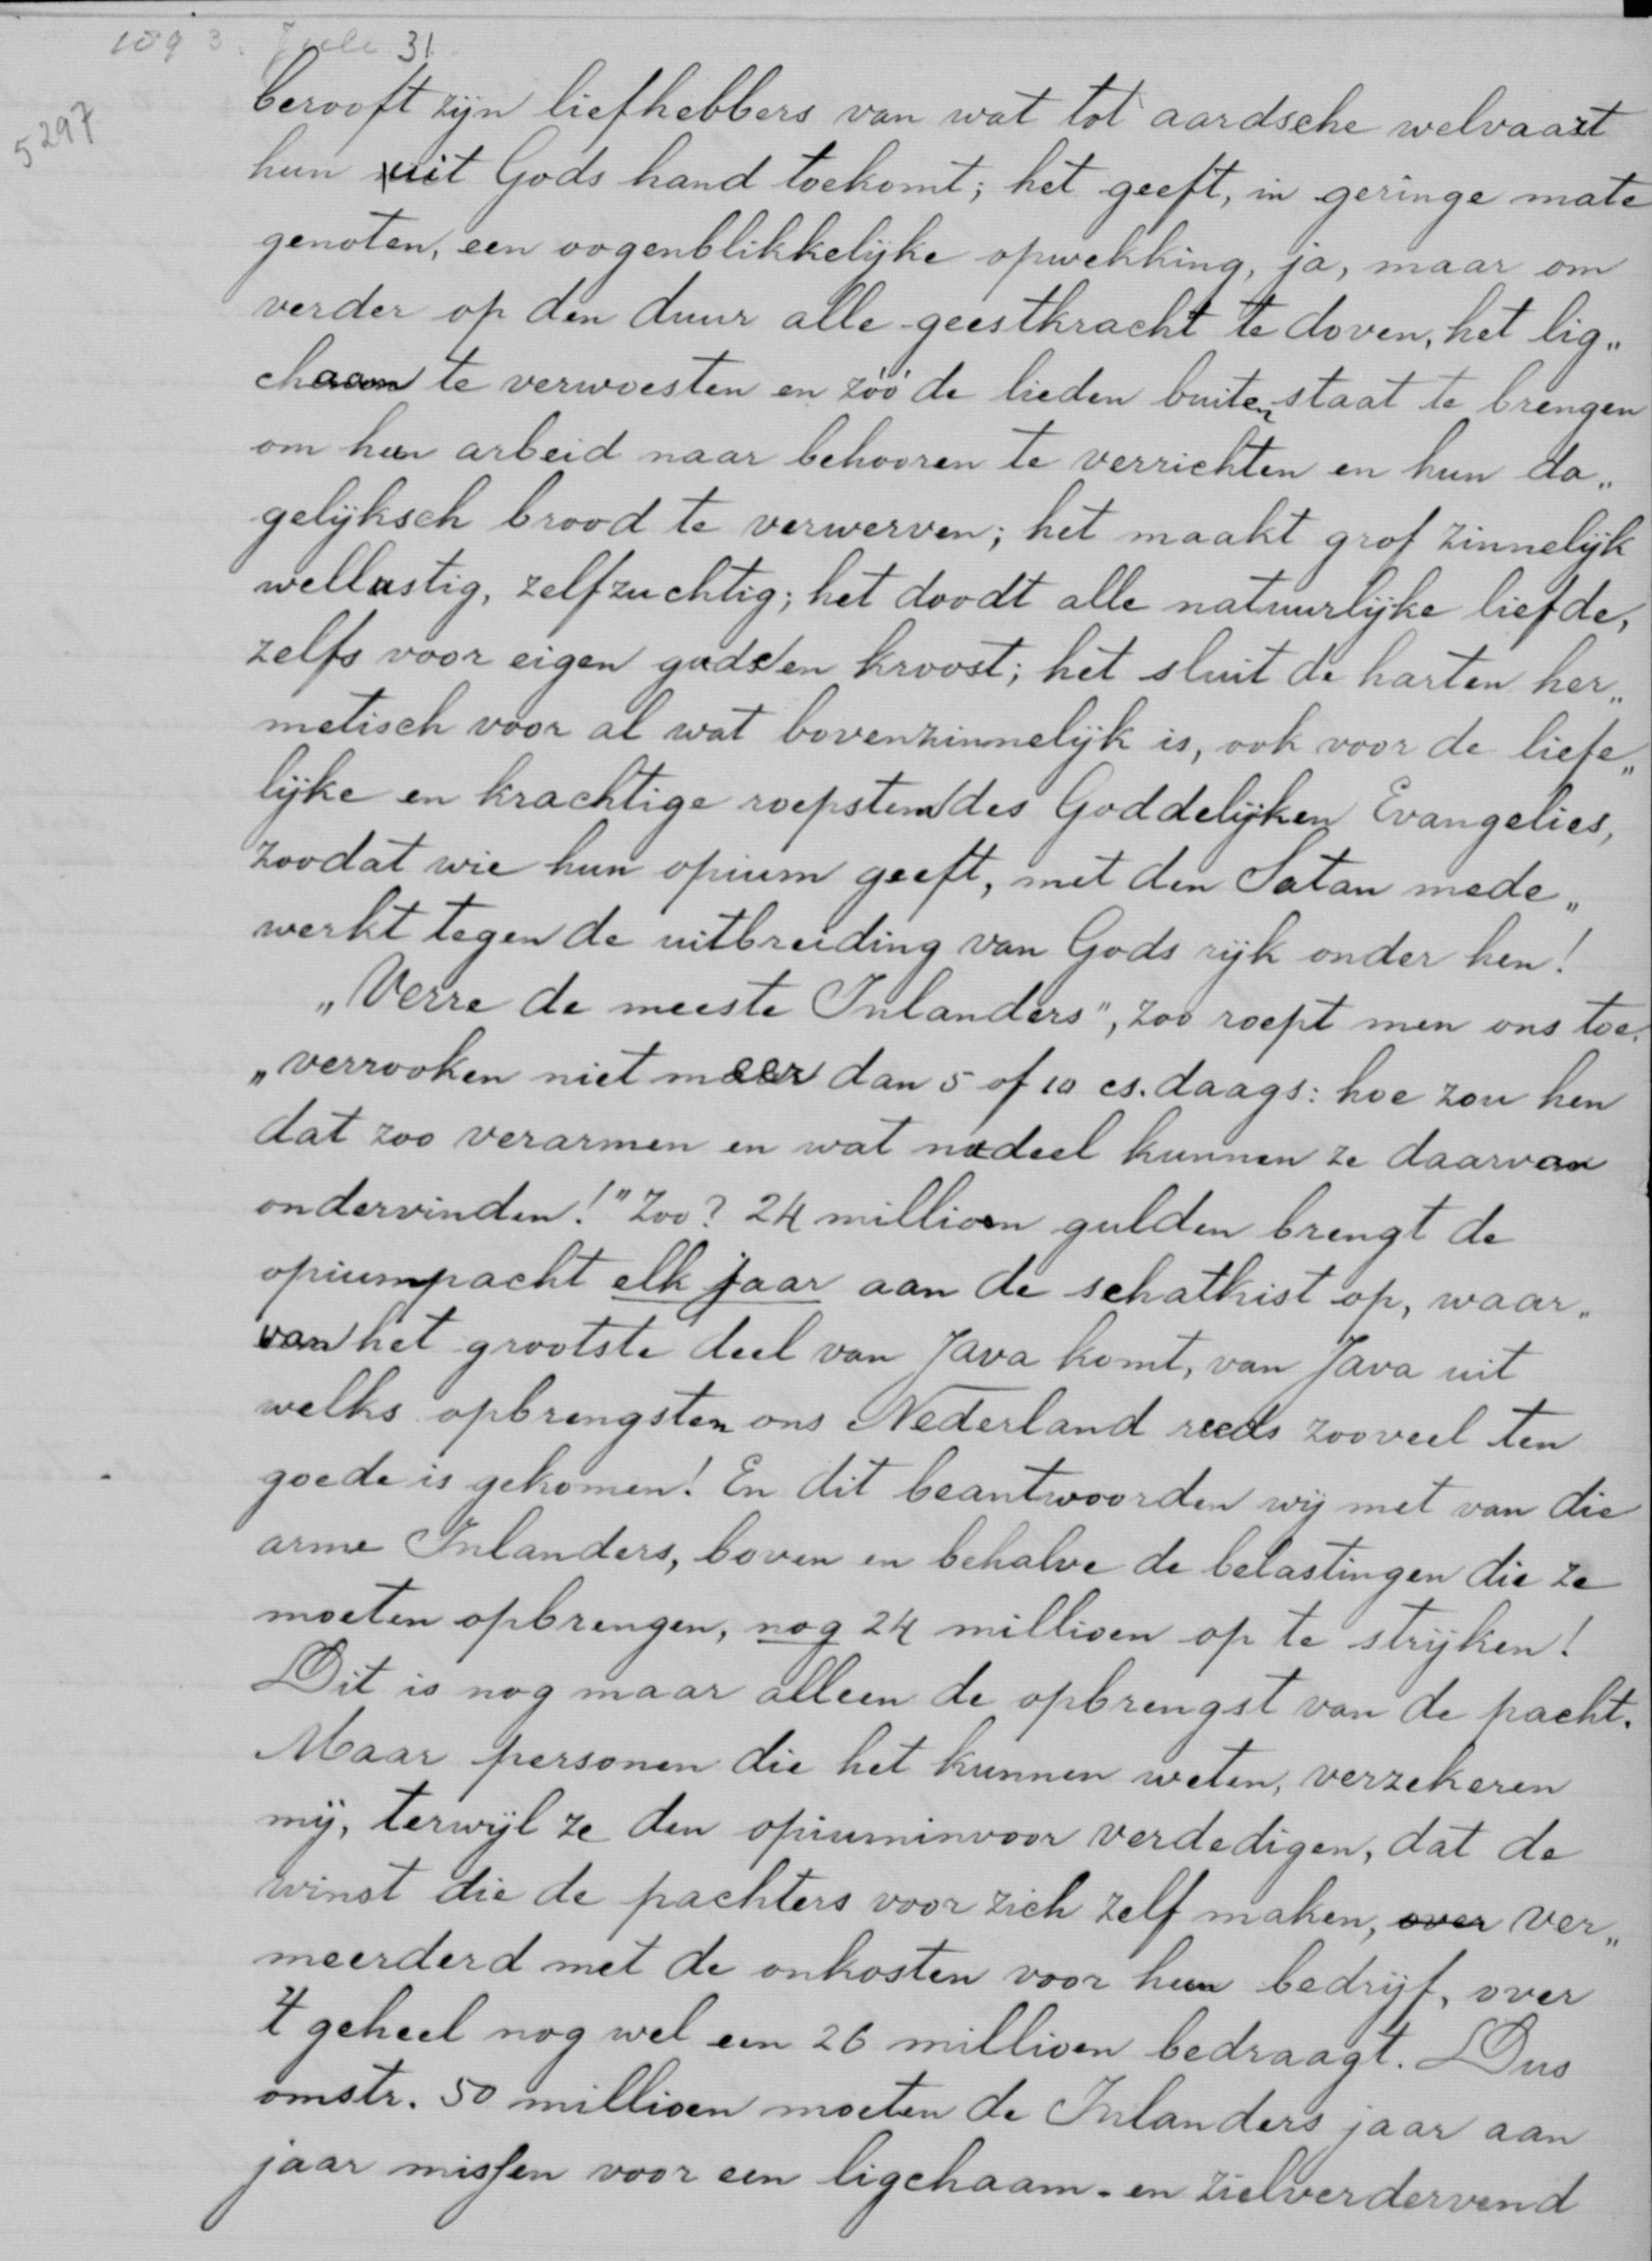 1893. Juli 31.
5297
berooft zijn liefhebbers van wat tot aardsche welvaart
hun uit Gods hand toekomt; het geeft, in geringe mate
genoten, een oogenblikkelijke opwekking, ja, maar om
verder op den duur alle geestkracht te doven, het lig„
chaam te verwoesten en zóó de lieden buiten staat te brengen
om hun arbeid naar behooren te verrichten en hun da„
gelijksch brood te verwerven; het maakt grof zinnelijk
wellustig, zelfzuchtig; het doodt alle natuurlijke liefde,
zelfs voor eigen gade en kroost; het sluit de harten her„
metisch voor al wat bovenzinnelijk is, ook voor de liefe„
lijke en krachtige roepstem des Goddelijken Evangelies,
zoodat wie hun opium geeft, met den Satan mede„
werkt tegen de uitbreiding van Gods rijk onder hen!
„Verre de meeste Inlanders", zoo roept men ons toe,
„verrooken niet meer dan 5 of 10 cs. daags: hoe zou hen
dat zoo verarmen en wat nadeel kunnen ze daarvan
ondervinden!" Zoo? 24 millioen gulden brengt de
opiumpacht elk jaar aan de schatkist op, waar„
van het grootste deel van Java komt, van Java uit
welks opbrengsten ons Nederland reeds zooveel ten
goede is gekomen! En dit beantwoorden wij met van die
arme Inlanders, boven en behalve de belastingen die ze
moeten opbrengen, nog 24 millioen op te strijken!
Dit is nog maar alleen de opbrengst van de pacht.
Maar personen die het kunnen weten, verzekeren
mij, terwijl ze den opiuminvoer verdedigen, dat de
winst die de pachters voor zich zelf maken, over ver„
meerderd met de onkosten voor hun bedrijf, over
't geheel nog wel een 26 millioen bedraagt. Dus
omstr. 50 millioen moeten de Inlanders jaar aan
jaar missen voor een ligchaam- en zielverdervend